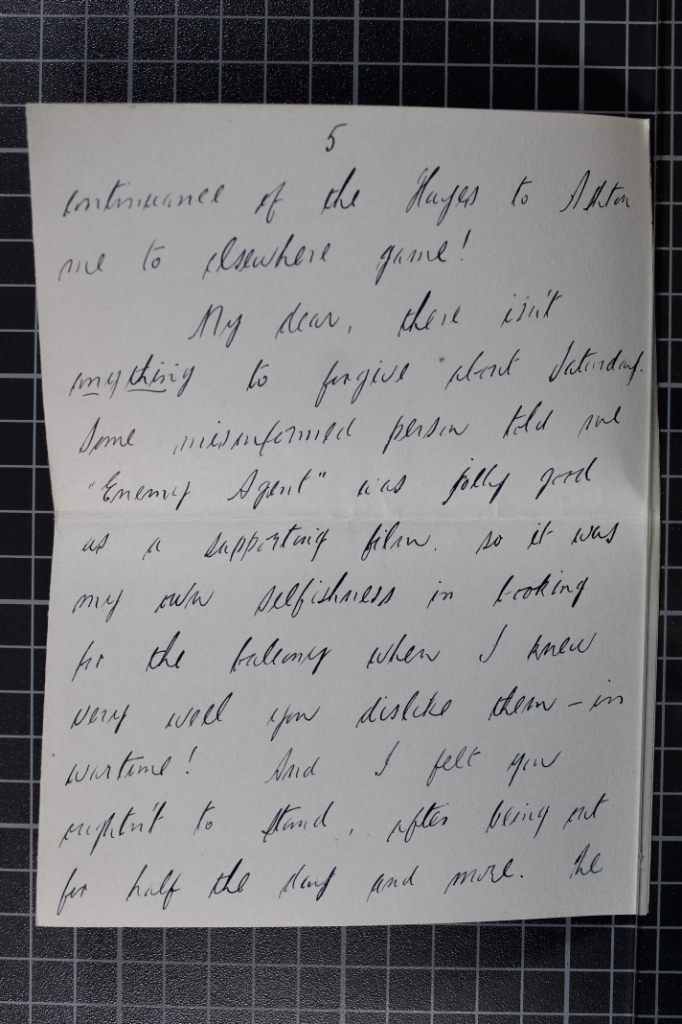 5
continuance of the Hayes to Ashton
me to elsewhere game!
My dear, there isn't
anything to forgive about Saturday.
Some misinformed person told me
"Enemy Agent" was jolly good
as a supporting film. so it was
my own selfishness in booking
for the balcony when I knew
very well you dislike them – in
wartime! And I felt you
oughtn't to stand, after being out
for half the day and more. The